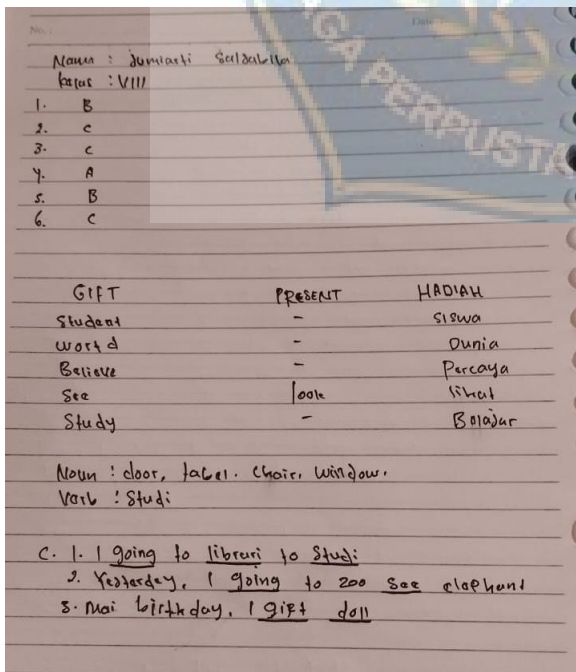 No.:
Date:
GA PERPUSTA
Nama : Jumiarti Salsabilla
Kelas : VIII
1. B
2. C
3. C
4. A
5. B
6. C
GIFT PRESENT HADIAH
Student - Siswa
World - Dunia
Believe - Percaya
See look lihat
Study - Balajar
Noun : door, tabel. Chair, window.
Varb : Studi
C. 1. I going to libruri to Studi
2. Yesterday, I going to zoo see elaphant
3. Mai birthday, I gift doll